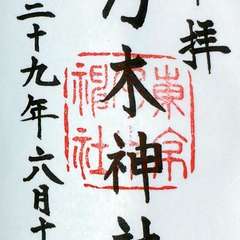 奉拝
乃木神社
二十九年六月十
東京
神社